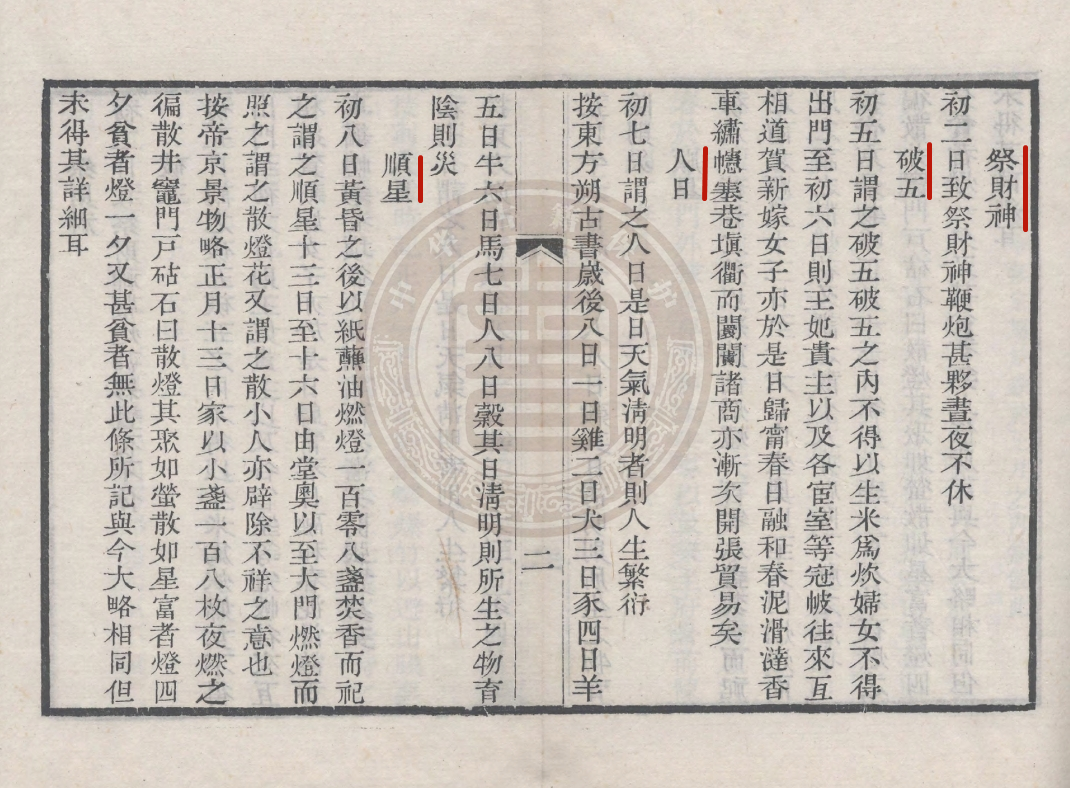 祭財神
初二日致祭財神鞭炮甚夥晝夜不休
破五
初五日謂之破五破五之內不得以生米為炊婦女不得
出門至初六日則王妃貴主以及各宦室等冠帔往來互
相道賀新嫁女子亦於是日歸甯春日融和春泥滑澾香
車繡幰塞巷塡衢而闤闠諸商亦漸次開張貿易矣
人日
初七日謂之人日是日天氣淸明者則人生繁衍
按東方朔古書歲後八日一日雞二日犬三日豕四日羊
二
五日牛六日馬七日人八日穀其日淸明則所生之物育
陰則災
順星
初八日黃昏之後以紙蘸油燃燈一百零八盞焚香而祀
之謂之順星十三日至十六日由堂奧以至大門燃燈而
照之謂之散燈花又謂之散小人亦辟除不祥之意也
按帝京景物略正月十三日家以小盞一百八枚夜燃之
徧散井竈門戸砧石曰散燈其聚如螢散如星富者燈四
夕貧者燈一夕又甚貧者無此條所記與今大略相同但
未得其詳細耳